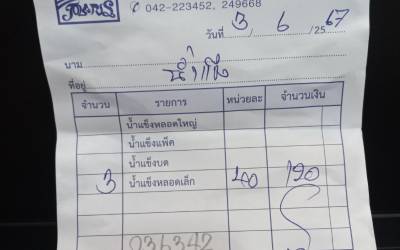 042-223452, 249668
วันที่ 3 / 6 / 2567
นาม น้ำแข็ง
ที่อยู่
จำนวน รายการ หน่วยละ จำนวนเงิน
น้ำแข็งหลอดใหญ่
น้ำแข็งแพ็ค
น้ำแข็งบด
3 น้ำแข็งหลอดเล็ก 40 120
036342